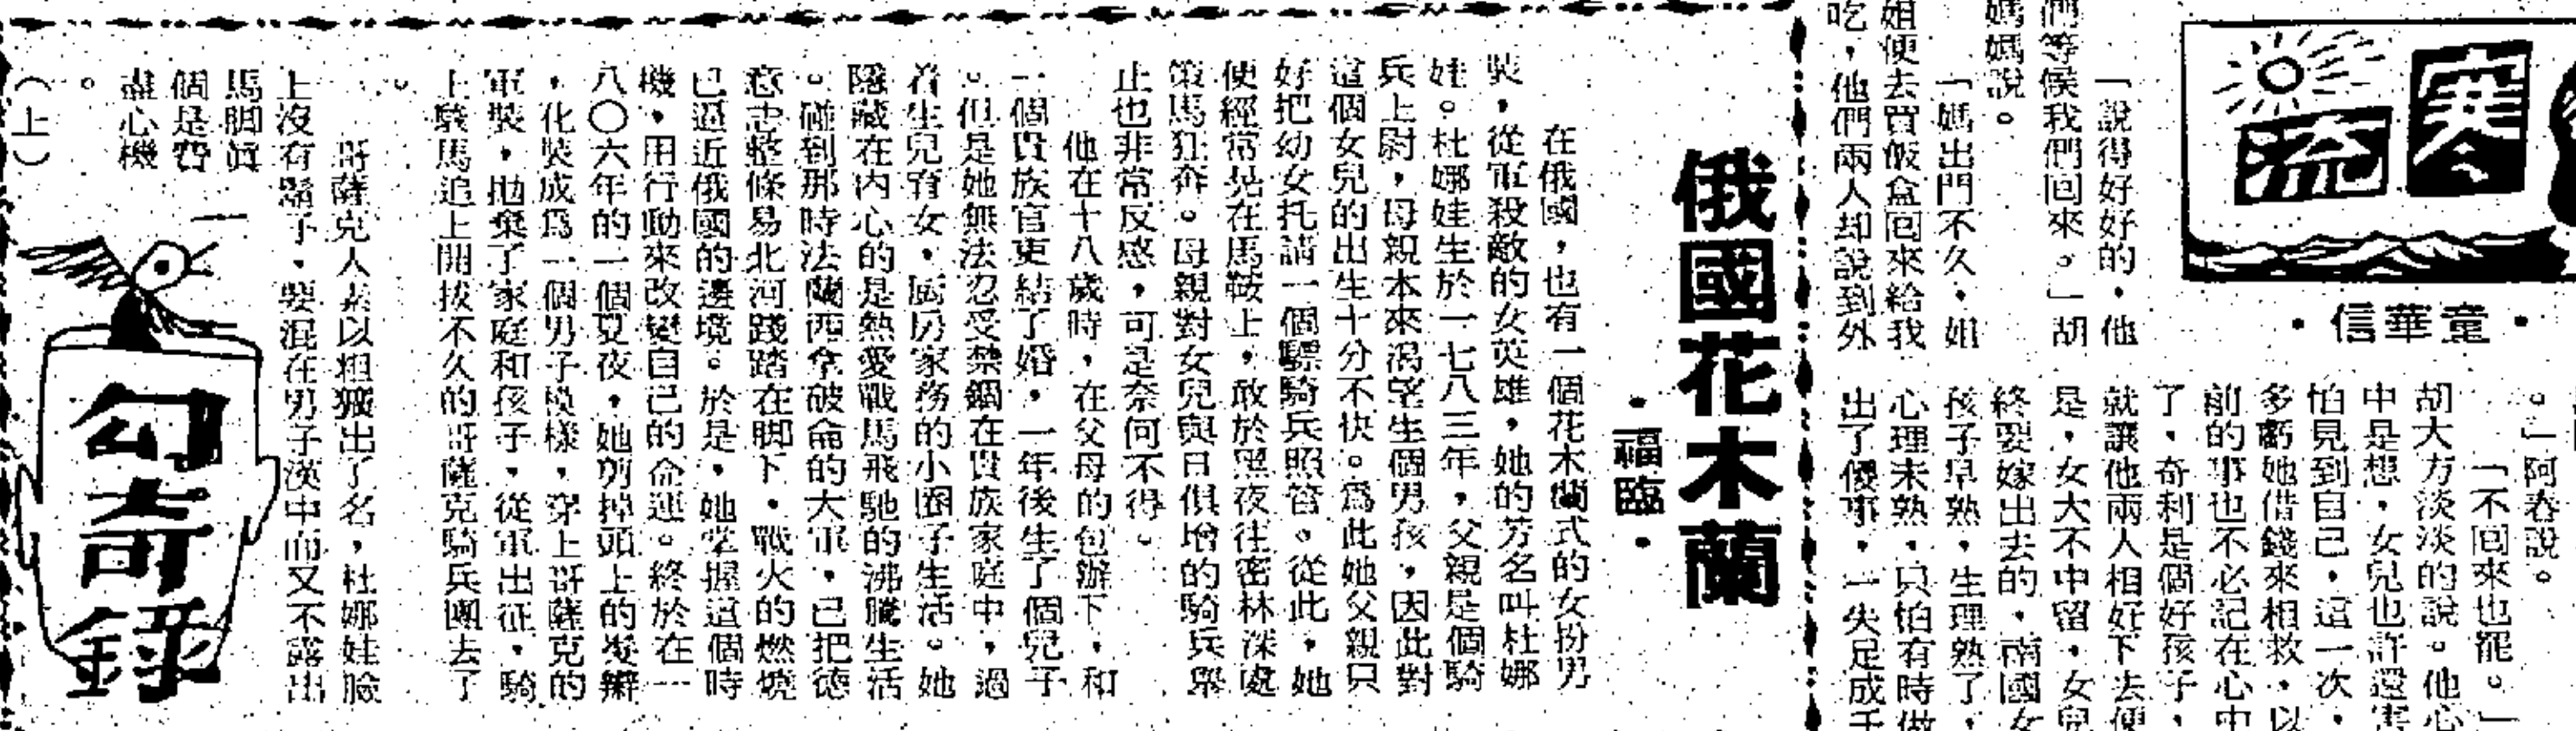 寒流
•童華信•
們等候我們回來。」胡
「說得好好的，他
媽媽說。
「媽出門不久，姐
姐便去買飯盒回來給我
吃，他們兩人却說到外
。」阿春說。
「不回來也罷。」
胡大方淡淡的說。他心
中是想，女兒也許還害
怕見到自己，這一次，
多虧她借錢來相救，以
前的事也不必記在心中
了，奇利是個好孩子，
就讓他兩人相好下去便
是，女大不中留，女兒
終要嫁出去的，南國女
孩子早熟，生理熟了，
心理未熟，只怕有時做
出了傻事，一失足成千
俄國花木蘭
•福臨•
在俄國，也有一個花木蘭式的女扮男
裝，從軍殺敵的女英雄，她的芳名叫杜娜
娃。杜娜娃生於一七八三年，父親是個騎
兵上尉，母親本來渴望生個男孩，因此對
這個女兒的出生十分不快。爲此她父親只
好把幼女托請一個驃騎兵照管。從此，她
便經常晃在馬鞍上，敢於黑夜往密林深處
策馬狂奔。母親對女兒與日俱增的騎兵舉
止也非常反感，可是奈何不得。
他在十八歲時，在父母的包辦下，和
一個貴族官吏結了婚，一年後生了個兒子
。但是她無法忍受禁錮在貴族家庭中，過
着生兒育女，厨房家務的小圈子生活。她
隱藏在內心的是熱愛戰馬飛馳的沸騰生活
。碰到那時法蘭西拿破侖的大軍，已把德
意志整條易北河踐踏在脚下，戰火的燃燒
已逼近俄國的邊境。於是，她掌握這個時
機，用行動來改變自己的命運。終於在一
八〇六年的一個夏夜，她剪掉頭上的髮辮
，化裝成爲一個男子模樣，穿上哥薩克的
軍裝，拋棄了家庭和孩子，從軍出征，騎
上駿馬追上開拔不久的哥薩克騎兵團去了
。
哥薩克人素以粗獷出了名，杜娜娃臉
上沒有鬍子，要混在男子漢中而又不露出
馬脚眞
個是費
盡心機
。
（上）
幻奇錄